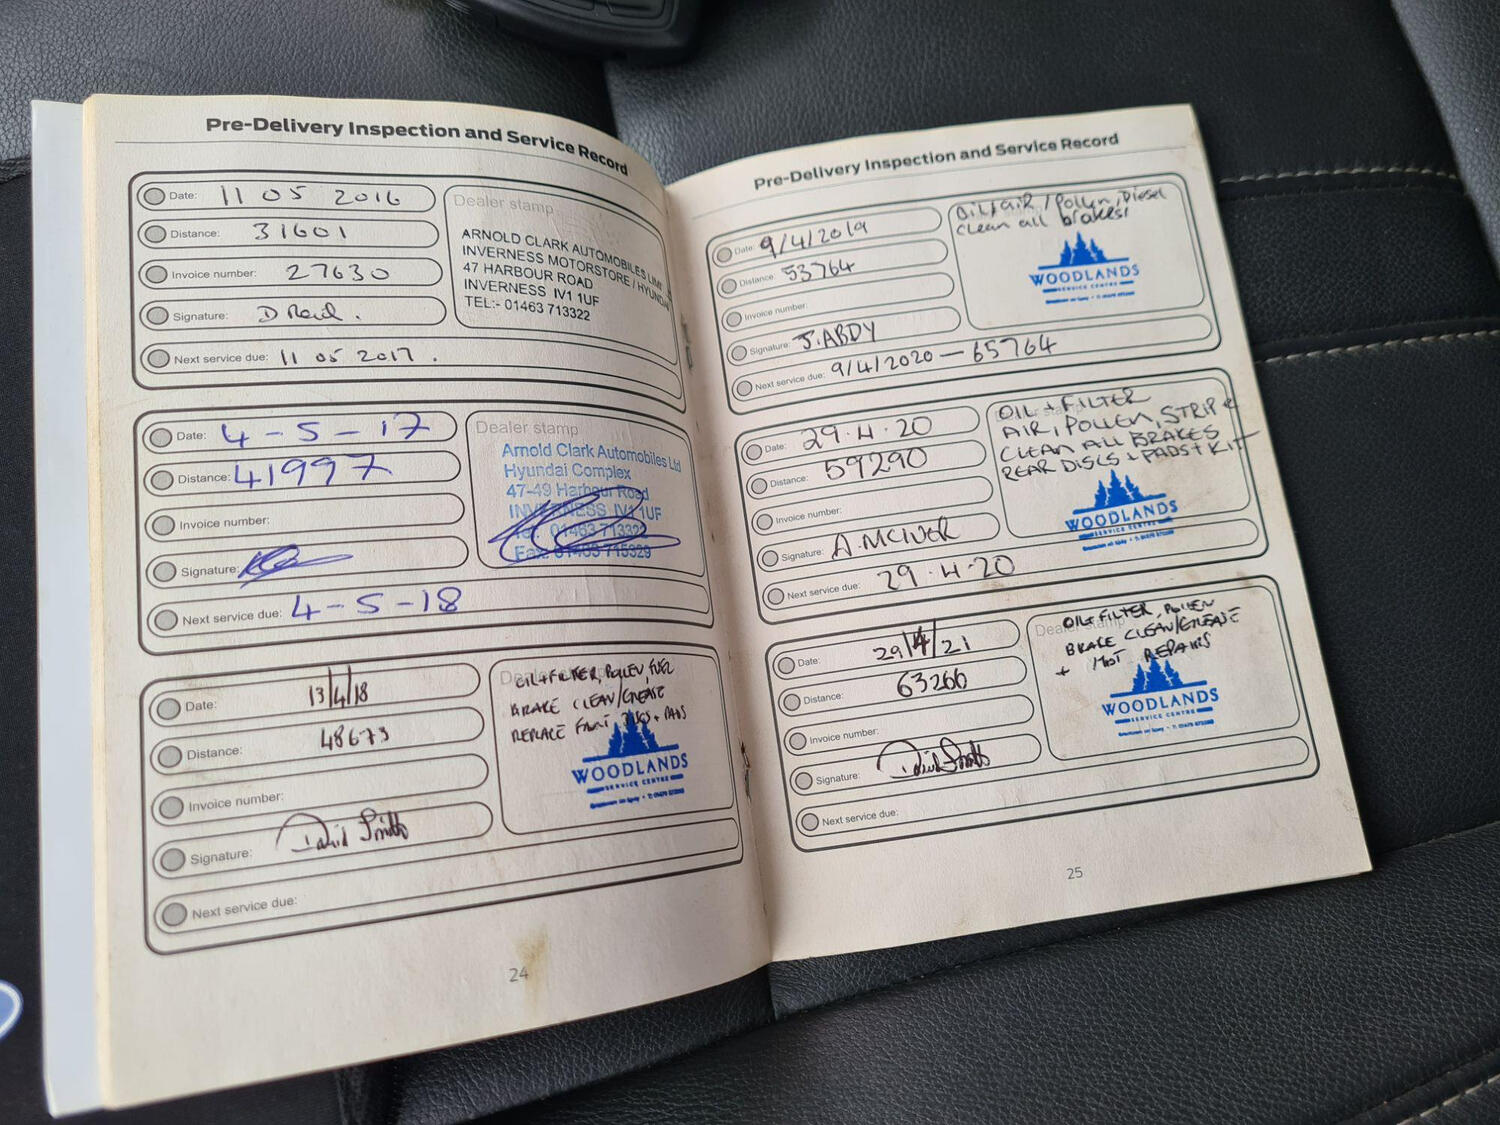 Pre-Delivery Inspection and Service Record
Date: 11 05 2016
Distance: 31601
Invoice number: 27630
Signature: D Reid.
Next service due: 11 05 2017.
Dealer stamp
ARNOLD CLARK AUTOMOBILES LIM
INVERNESS MOTORSTORE / HYUNDAI
47 HARBOUR ROAD
INVERNESS IV1 1UF
TEL:- 01463 713322
Date: 4-5-17
Distance: 41997
Invoice number:
Signature:
Next service due: 4-5-18
Dealer stamp
Arnold Clark Automobiles Ltd
Hyundai Complex
47-49 Harbour Road
INVERNESS IV1 1UF
Tel: 01463 713322
Fax: 01463 715329
Date: 13/4/18
Distance: 48673
Invoice number:
Signature: David Smith
Next service due:
Dealer stamp
OIL+FILTER, POLLEN, FUEL
BRAKE CLEAN/GREASE
REPLACE FRONT DISCS + PADS
WOODLANDS
SERVICE CENTRE
24
Pre-Delivery Inspection and Service Record
Date: 9/4/2019
Distance: 53764
Invoice number:
Signature: J.ABDY
Next service due: 9/4/2020 - 65764
Oil+air/Pollen, Diesel
clean all brakes,
WOODLANDS
SERVICE CENTRE
Date: 29.4.20
Distance: 59290
Invoice number:
Signature: A.MCIVER
Next service due: 29.4.20
OIL + FILTER
AIR, POLLEN, STRIP &
CLEAN ALL BRAKES
REAR DISCS + PADS + KIT
WOODLANDS
SERVICE CENTRE
Date: 29/4/21
Distance: 63266
Invoice number:
Signature: David Smith
Next service due:
Dealer stamp
OIL+FILTER, POLLEN
BRAKE CLEAN/GREASE
+ MOT REPAIRS
WOODLANDS
SERVICE CENTRE
25